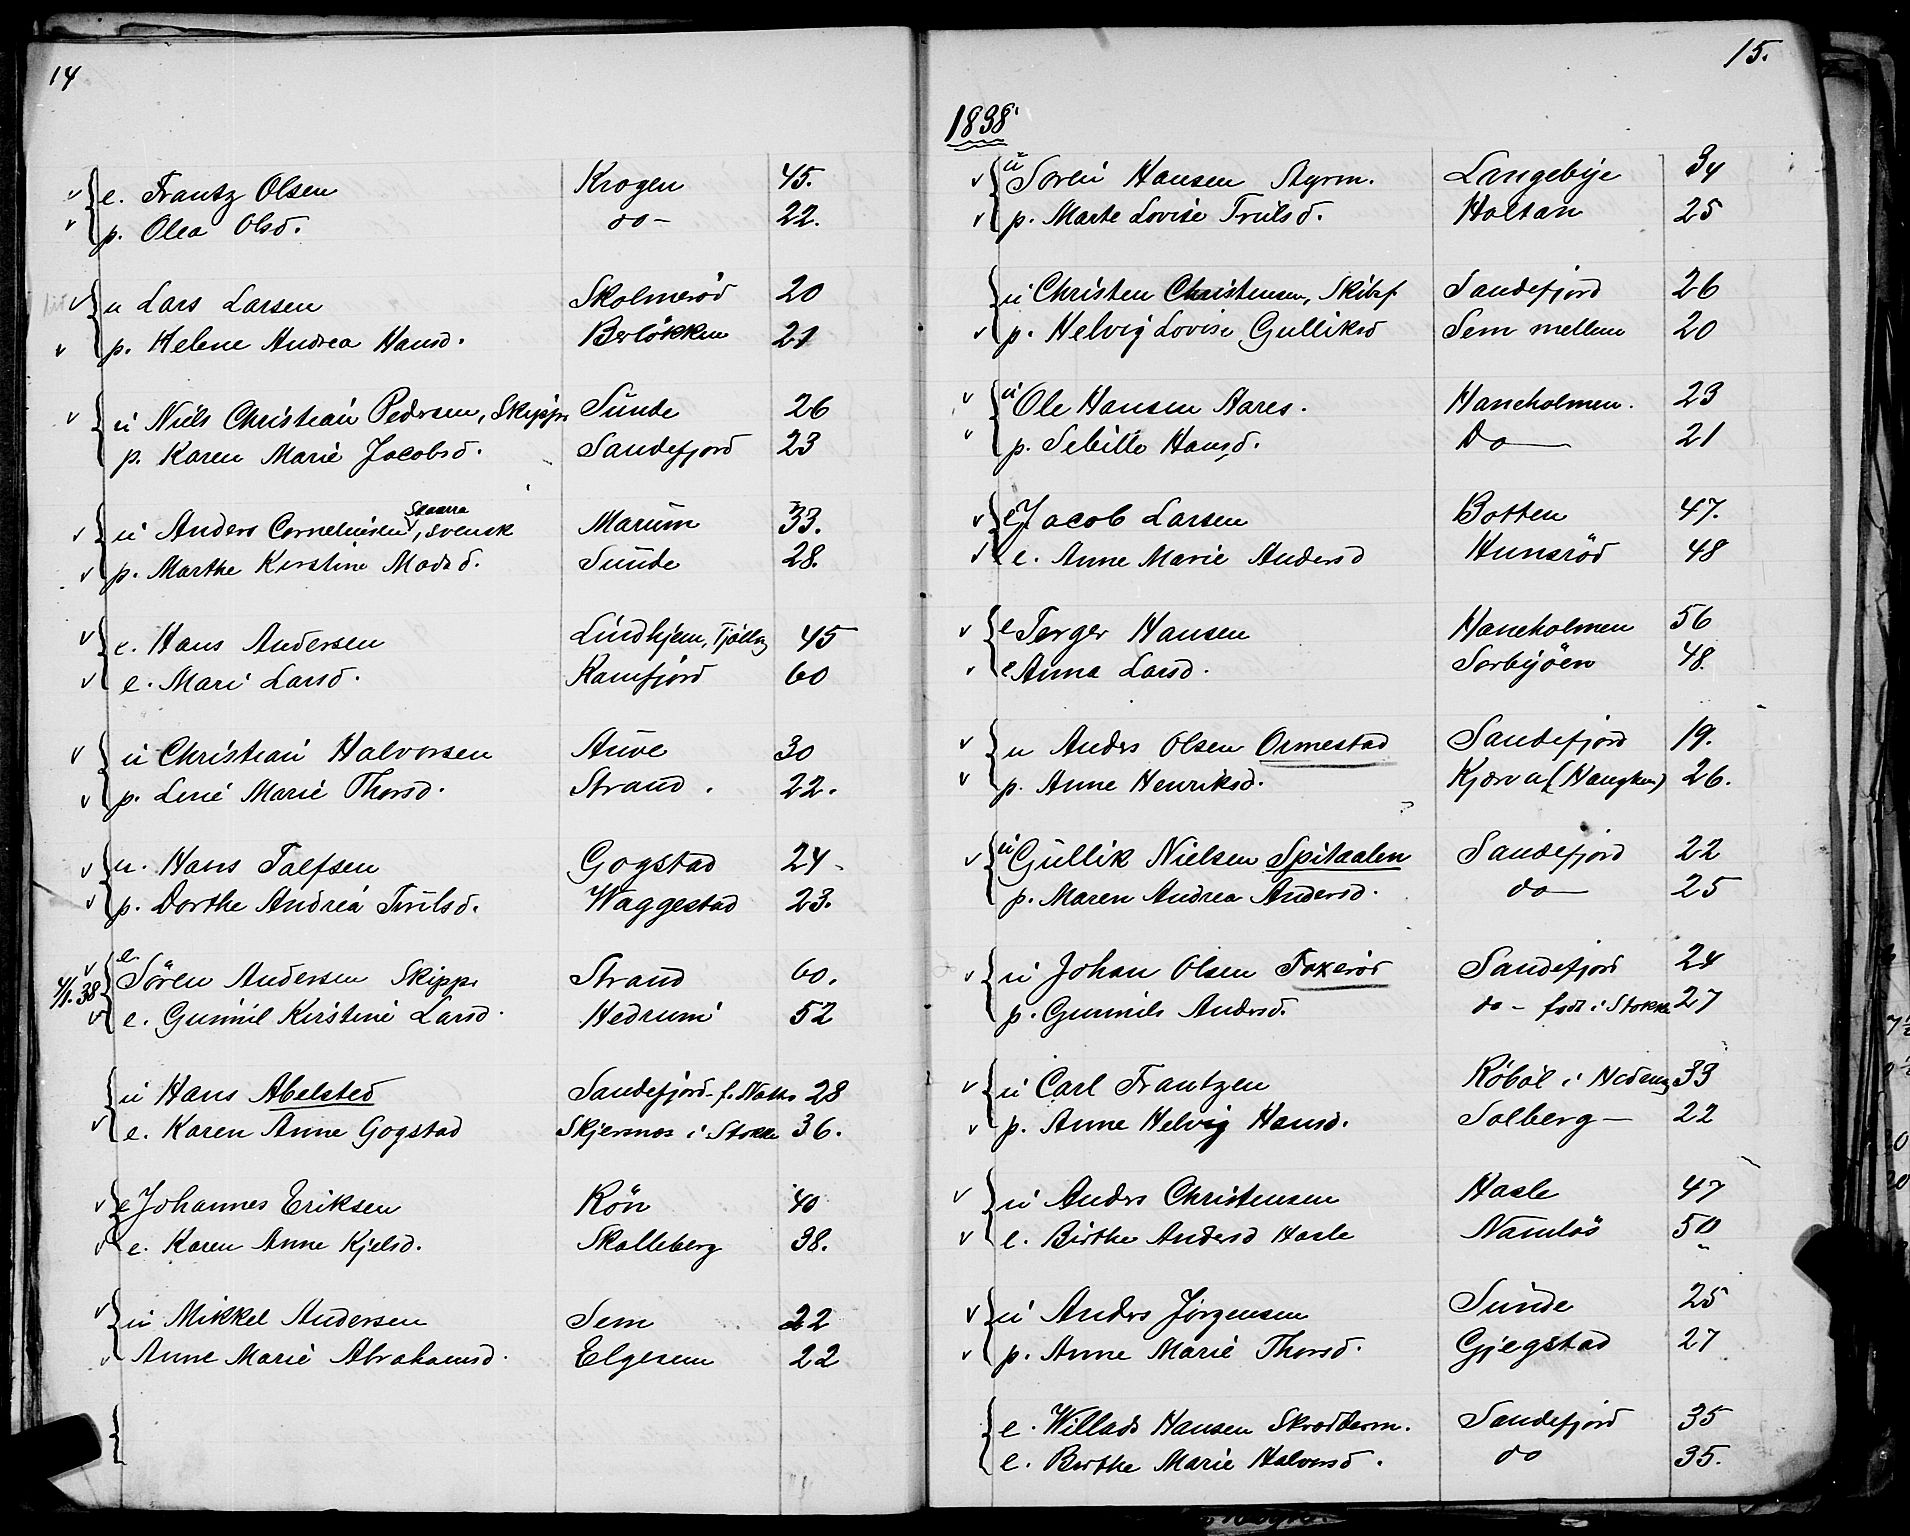 14
e. Frantz Olsen Krogen 45.
p. Olea Olsd. do - 22.
u Lars Larsen Skolmerød 20
p. Helene Andrea Hansd. Berløkken 21
u Niels Christian Pedersen, Skippr Sunde 26
p. Karen Marie Jacobsd. Sandefjord 23
Skaarra
u Anders Corneliusen, svensk Marum 33.
p. Marthe Kirstine Madsd. Sunde 28.
e. Hans Andersen Lindhjem, Tjølling 45
e. Mari Larsd. Kamfjord 60
u Christian Halvorsen Auve 30
p. Line Marie Thorsd. Strand. 22.
u. Hans Tolfsen Gogstad 24
p. Dorthe Andrea Trulsd. Waggestad 23.
e. Søren Andersen Skippr Strand 60.
4/1. 38
e. Gunnil Kirstine Larsd. Hedrum 52
u Hans Abelsted Sandefjord f. 28
e. Karen Anne Gogstad Skjersnos i Stokke 36.
e Johannes Eriksen Røn 40
e. Karen Anne Kjelsd. Skalleberg 38.
u Mikkel Andersen Sem 22
Anne Marie Abrahamsd. Elgesem 22
15.
1838
u Søren Hansen Styrm. Langebye 34
p. Marte Lovise Trulsd. Holtan 25
u Christen Christensen, Skibsf. Sandefjord 26
p. Helvig Lovise Gulliksd Sem mellem 20
u Ole Hansen Aares. Haneholmen. 23
p. Sebille Hansd. Do 21
e Jacob Larsen Botten 47.
e. Anne Marie Andersd Hunsrød 48
e Terger Hansen Haneholmen 56
e Anna Larsd. Sørbyøen 48.
u Anders Olsen Ormestad Sandefjord 19.
p. Anne Henriksd. Kjærva (Haugken) 26.
u Gullik Nielsen Spitaalen Sandefjord 22
p. Maren Andrea Andersd. do 25
u Johan Olsen Foxerød Sandefjord 24
p. Gunnild Andersd. do - født i Stokke 27
u Carl Frantzen Røbøl i Hedeng 33
p. Anne Helvig Hansd. Solberg - 22
u Anders Christensen Hasle 47
e. Birthe Andersd Hasle Namløs 50
u Anders Jørgensen Sunde 25
p. Anne Marie Thorsd. Gjegstad 27
e. Willads Hansen Skrædderm. Sandefjord 35
e. Berthe Marie Halvorsd. do 35.